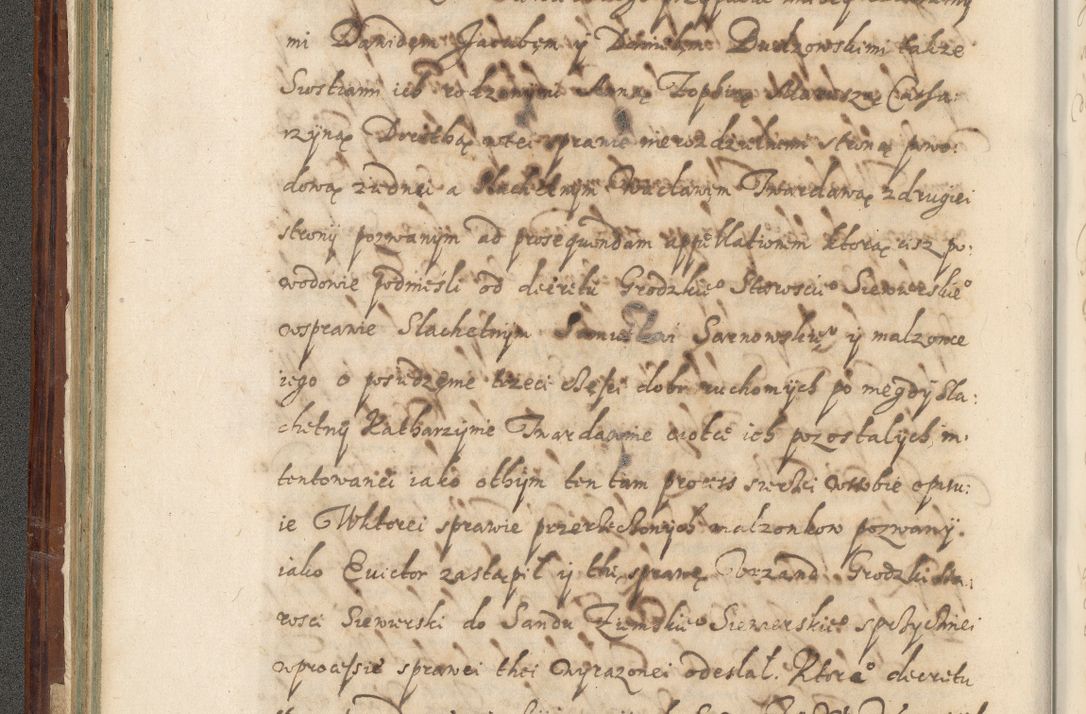 mi Dawidem Jacubem ÿ Danielem Dudzowskimi także
Siostrami ich rodzonymi Anną Zophią Maruszą Catha:
rzÿną Dorothą wtei sprawie nierozdzielnemi stroną powo:
dową ziednei a Slachetnÿm Wacławem Twardawą zdrugiei
stronÿ pozwanÿm ad prosequendam appellationem ktorą cisz po:
wodowie podnieśli od decretu Grodzkieo Starosciео Siewierskieo
wsprawie Slachetnÿm Sarnowskie ÿ malzonce
iego o posiedzęnie trzeci części dobr ruchomÿch po niegdÿ Sla:
chetnÿ Katharzÿnie Twardawnie ciotce ich pozostalÿch in:
tentowanei iako othÿm ten tam process szerzei wsobie opisu:
ie Wktorei sprawie przerzeczonÿch malzonkow pozwanÿ
iako Evictor zastąpił ÿ thę sprawę Vrzand Grodzki Sta:
rosci Siewierski do Sandu Ziemskieo Siewierskieo sprzÿczÿnei
wprocessie sprawei thei wÿrazonei odeslal. Ktoreo decretu